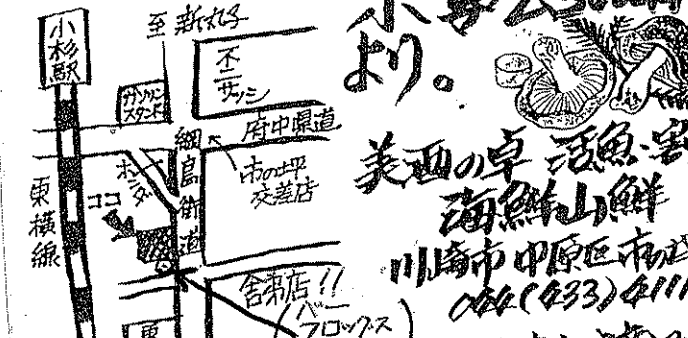 小杉駅
至 新丸子
不二サッシ
ガソリン
スタンド
府中県道
綱島街道
市の坪
交差店
ホンダ
ココ
東横線
舎弟店!!
(バー
フロックス)
より。
美酒の卓 活魚・割
海鮮山鮮
川崎市中原区市の坪
044(433)4111